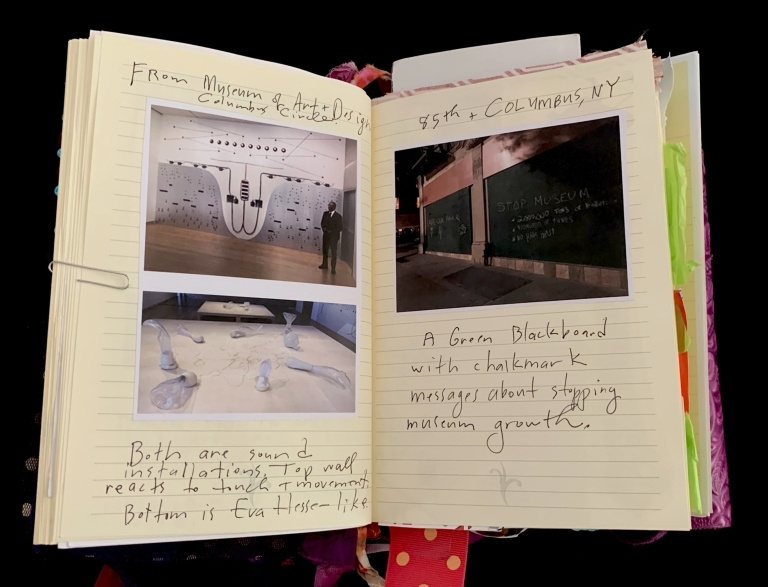 From Museum of Art + Design
Columbus Circle
Both are sound
installations. Top wall
reacts to touch + movement.
Bottom is Eva Hesse-like.
85th + Columbus, NY
STOP MUSEUM
A Green Blackboard
with chalkmark
messages about stopping
museum growth.